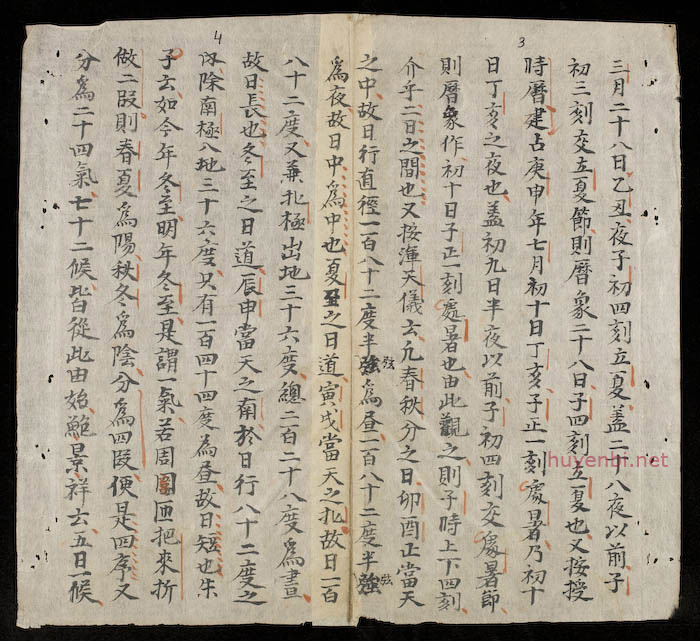 3
三月二十八日乙丑夜子初四刻立夏蓋二十八夜以前子
初三刻交立夏節則曆象二十八日子四刻立夏也又按授
時曆建占庚申年七月初十日丁亥子正一刻處暑乃初十
日丁亥之夜也蓋初九日半夜以前子初四刻交處暑節
則曆象作初十日子正一刻處暑也由此觀之則子時上下四刻
介乎二日之間也又按渾天儀云凢春秋分之日卯酉正當天
之中故日行直徑一百八十二度半強弦為昼一百八十二度半強弦
為夜故日中為中也夏至之日道寅戌當天之北故日一百
4
八十二度又兼北極出地三十六度總二百二十八度為晝
故日長也冬至之日道辰申當天之南於日行八十二度之
內除南極入地三十六度只有一百四十四度為昼故日短也朱
子云如今年冬至明年冬至是謂一氣若周圓匝把來折
做二段則春夏為陽秋冬為陰分為四段便是四序又
分為二十四氣七十二候皆從此由始鮑景祥云五日一候
huyenbi.net